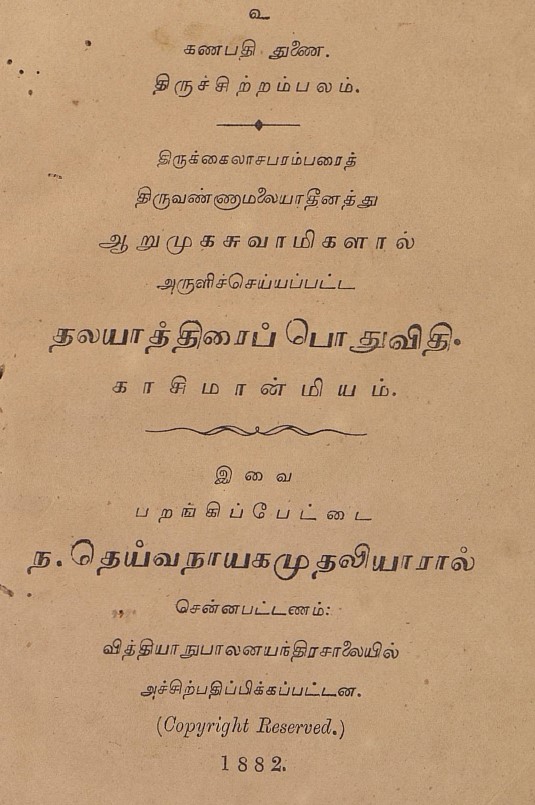 உ
கணபதி துணை.
திருச்சிற்றம்பலம்.
திருக்கைலாசபரம்பரைத்
திருவண்ணாமலையாதீனத்து
ஆறுமுகசுவாமிகளால்
அருளிச்செய்யப்பட்ட
தலயாத்திரைப் பொதுவிதி.
காசிமான்மியம்.
இவை
பறங்கிப்பேட்டை
ந. தெய்வநாயகமுதலியாரால்
சென்னபட்டணம்:
வித்தியாநுபாலனயந்திரசாலையில்
அச்சிற்பதிப்பிக்கப்பட்டன.
(Copyright Reserved.)
1882.